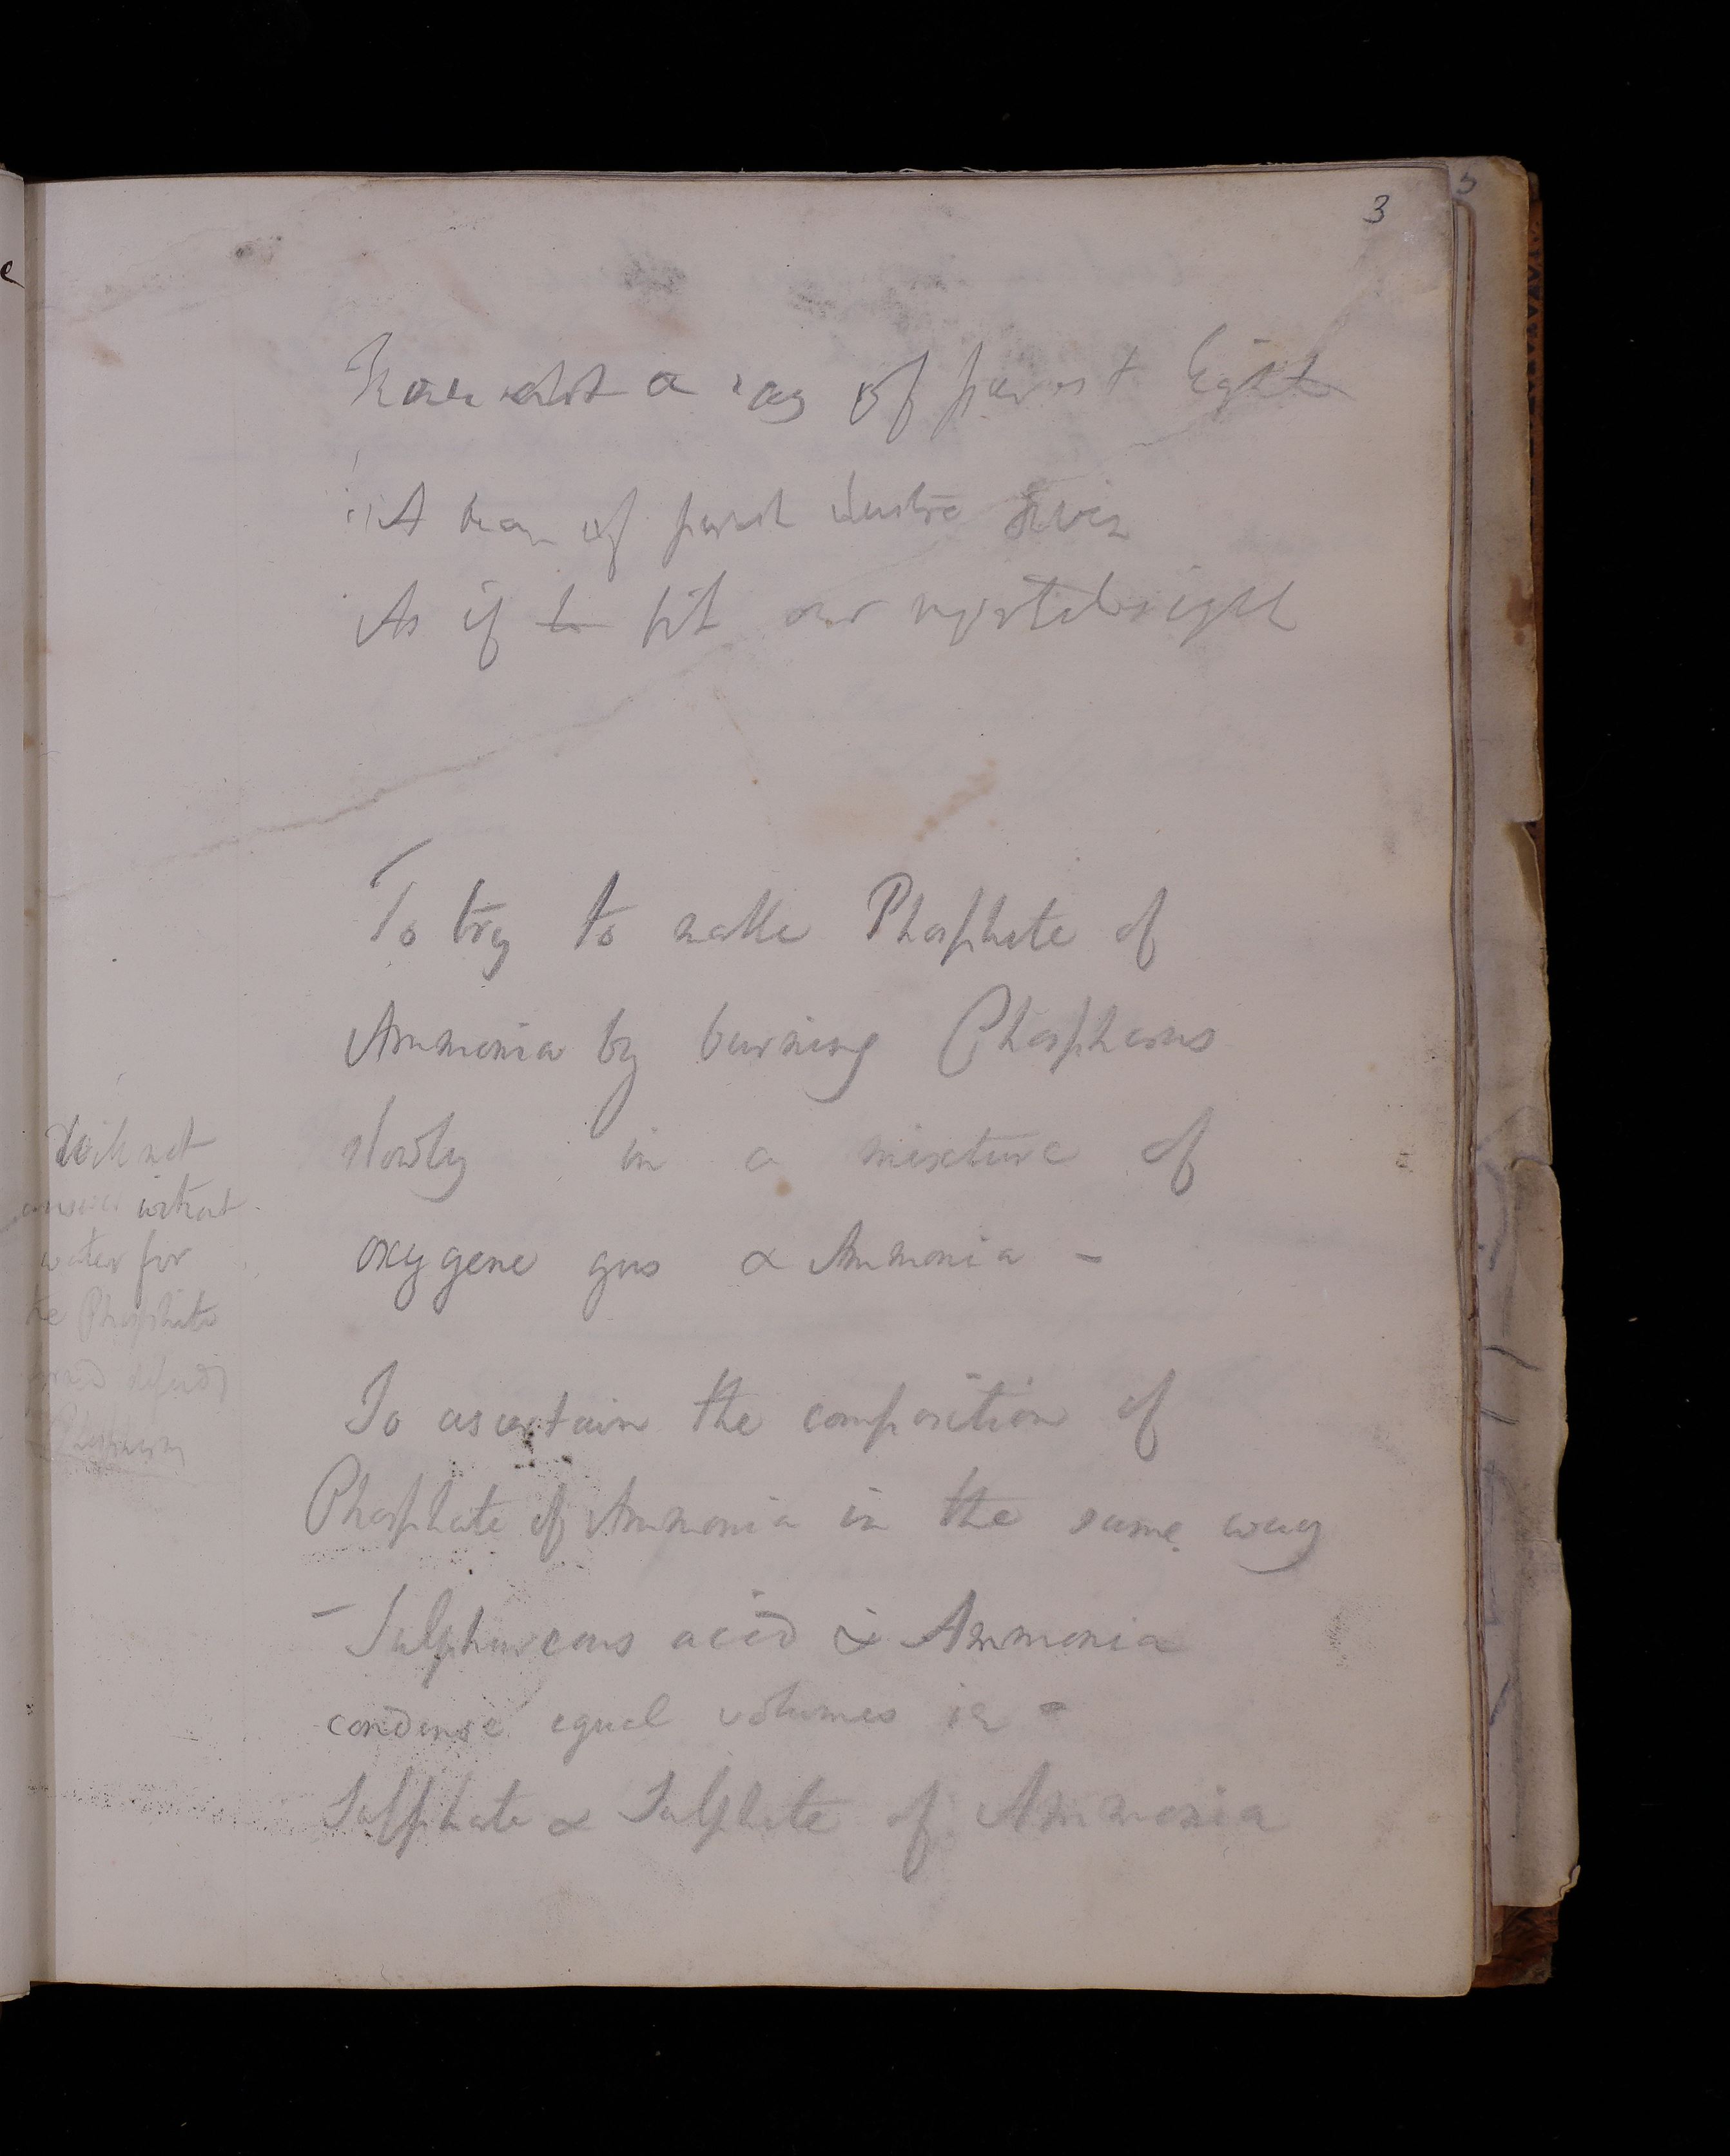 3
a ray of purest light
A beam of purest lustre given
As if to fit our mortal sight
To try to make Phosphate of
Ammonia by burning Phosphorus
slowly in a mixture of
oxygene gas & Ammonia -
Will not
answer without
water for
the Phosphate
defends
Phosphorus
To ascertain the composition of
Phosphate of Ammonia in the same way
- Sulphureous acid & Ammonia
condense equal volumes ie -
Sulphate & Sulphite of Ammonia